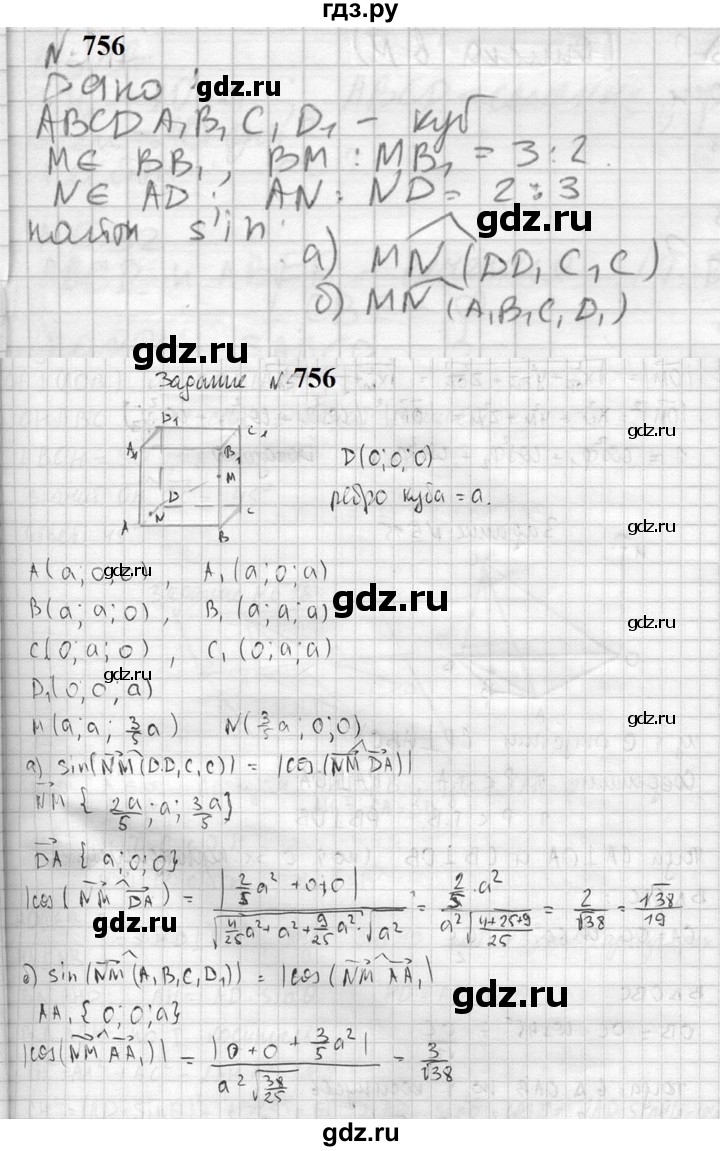 гдз.ру
№ 756
Дано:
gdz.ru
ABCDA₁B₁C₁D₁ – куб
M∈ BB₁, BM : MB₁ = 3:2.
N∈ AD; AN : ND = 2:3
gdz.ru
найти sin:
а) MN (DD₁C₁C)
б) MN (A₁B₁C₁D₁)
gdz.ru
gdz.ru
Задание № 756
gdz.ru
D₁ C₁
A₁ B₁
M
D
N C
A B
D(0;0;0)
ребро куба = a.
gdz.ru
gdz.ru
A(a;0;0), A₁(a;0;a)
gdz.ru
gdz.ru
B(a;a;0), B₁(a;a;a)
gdz.ru
C(0;a;0), C₁(0;a;a)
gdz.ru
D₁(0;0;a)
M(a;a; 3/5 a) N(3/5 a; 0; 0)
gdz.ru
а) sin(NM (DD₁C₁C)) = |cos(NM DA)|
gdz.ru
NM { 2a/5; a; 3a/5}
DA {a;0;0}
gdz.ru
|cos(NM DA)| = |2/5 a² + 0+0| / √(4/25 a² + a² + 9/25 a²) · √a² = 2/5 · a² / a²√((4+25+9)/25) = 2/√38 = √38/19
gdz.ru
gdz.ru
б) sin(NM (A₁B₁C₁D₁)) = |cos(NM AA₁)|
gdz.ru
AA₁ {0;0;a}
|cos(NM AA₁)| = |0+0+ 3/5 a²| / a²√(38/25) = 3/√38
gdz.ru
gdz.ru
gdz.ru